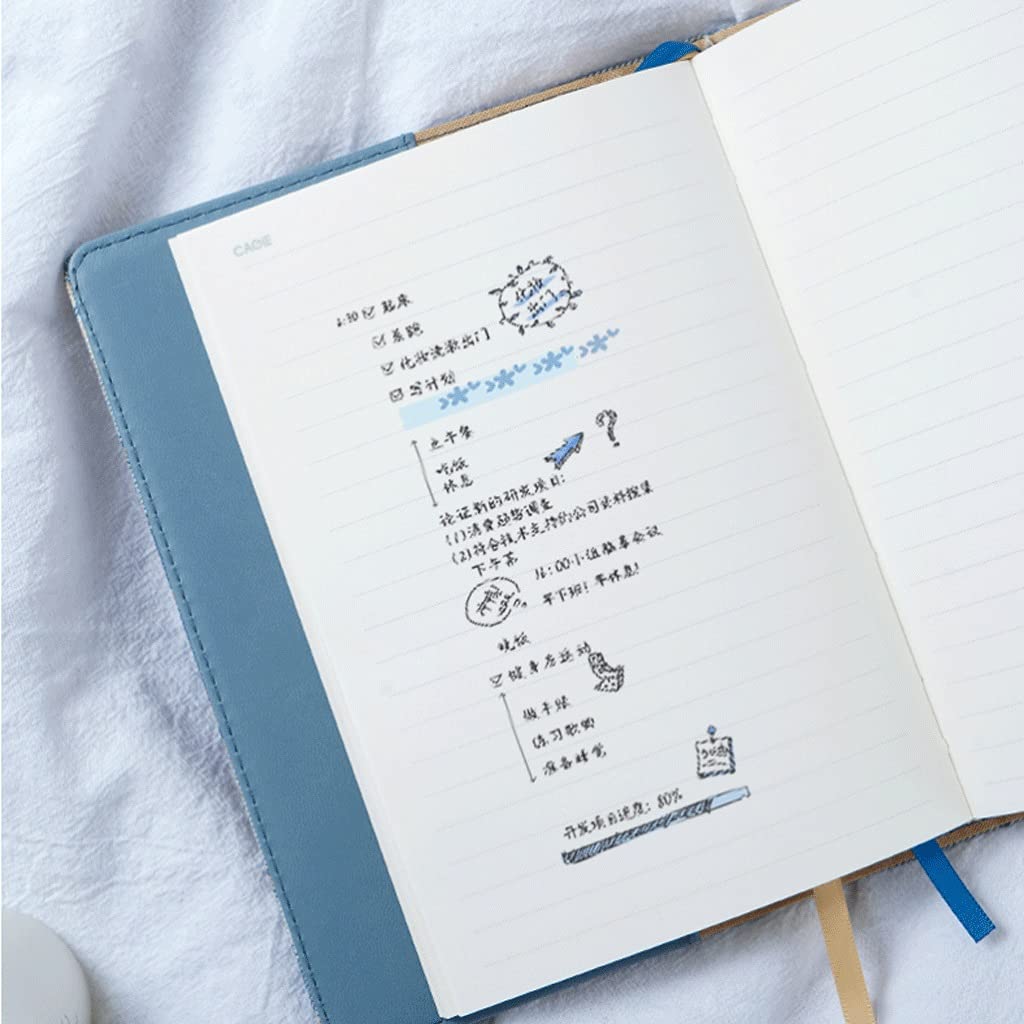 CAGIE
起床
晨跑
化妆洗漱出门
写计划
上午茶
吃饭
休息
论证新的研发项目:
(1)消费趋势调查
(2)符合技术支持的公司资料搜集
下午茶
16:00小组赛事会议
早下班!早休息!
晚饭
健身房运动
做手账
练习歌曲
准备睡觉
开发项目进度: 80%